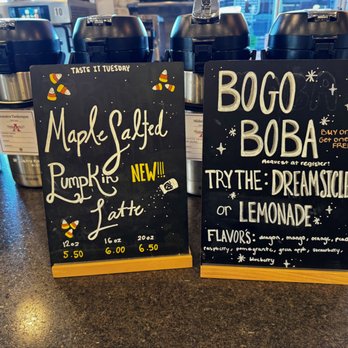 TASTE IT TUESDAY
Maple Salted
Pumpkin NEW!!!
Latte
12oz 16oz 20oz
5.50 6.00 6.50
BOGO
BOBA
Buy one
Get one
FREE
Request at register!
TRY THE: DREAMSICLE
or LEMONADE
FLAVORS: dragon, mango, orange,
raspberry, pomegranate, green apple, strawberry,
blueberry